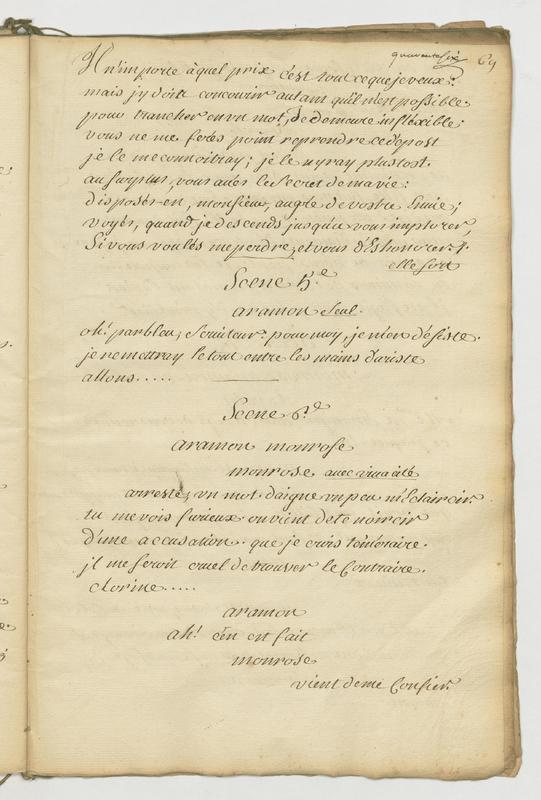 quarante six 64
Il n'importe àquel prix c'est tout ceque je veux.
mais j'y dois concourir autant quil m'est possible.
pour trancher en un mot, Je demeure infléxible;
vous ne me ferés point reprendre ce dépost
je le meconnoitray; je le niray plustost.
au surplus, vous avés le Secret de ma vie:
disposés-en, monsieur, augré de vostre Envie;
voyés, quand je descends jusqu'a vous implorer,
Si vous voulés me perdre, et vous d'Eshonorer.
elle sort
Scene 5.e
aramon Seul.
oh! parbleu, Serviteur. pour moy, je m'en désiste.
je remettray le tout entre les mains d'ariste
allons.....
Scene 6.e
aramon monrose
monrose avec vivacité
arreste, un mot. daigne un peu m'Eclaircir.
tu me vois furieux. on vient de te noircir
d'une accusation. que je crois téméraire.
jl me seroit cruel de trouver le Contraire.
dorine.....
aramon
ah! c'en est fait
monrose
vient de me Confier.